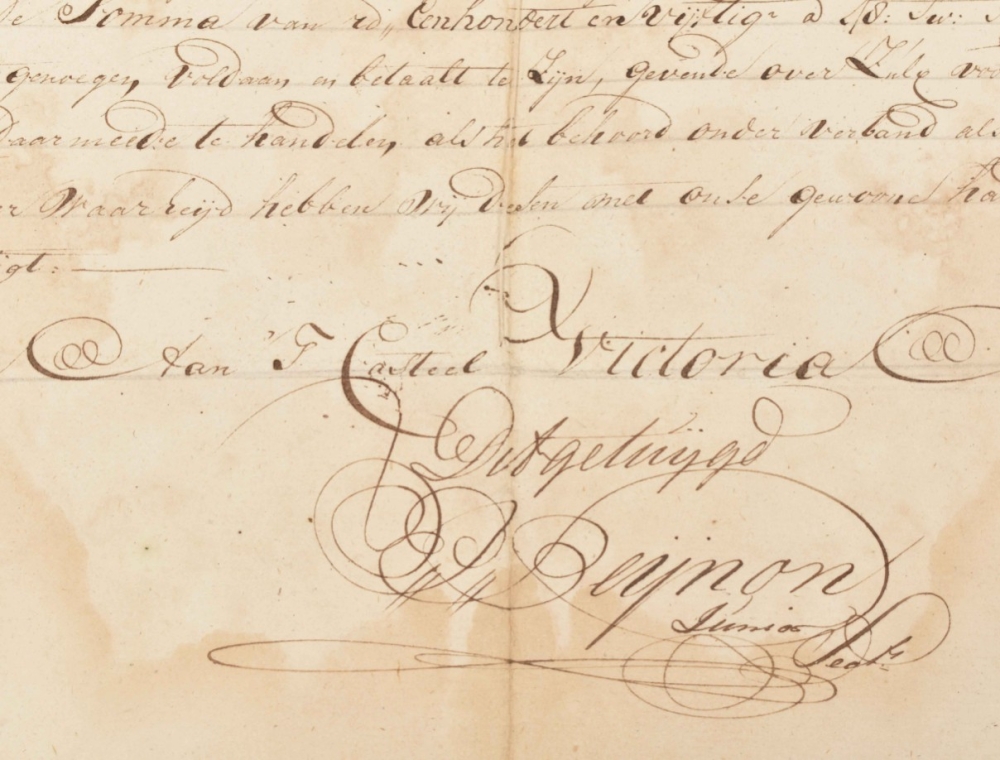 de Somma van rd„ Eenhondert en Vijftig a 48: Sw:
genoegen, Voldaan en betaalt te Zijn, gevende over Zulx voo
daarmeede te handelen, als het behoord onder verband als
er Waarheijd hebben Wij deesen met onse gewoone ha
igt:
Aan 'T Casteel Victoria
Dit getuijgd
Beijnon
Junior
Sects